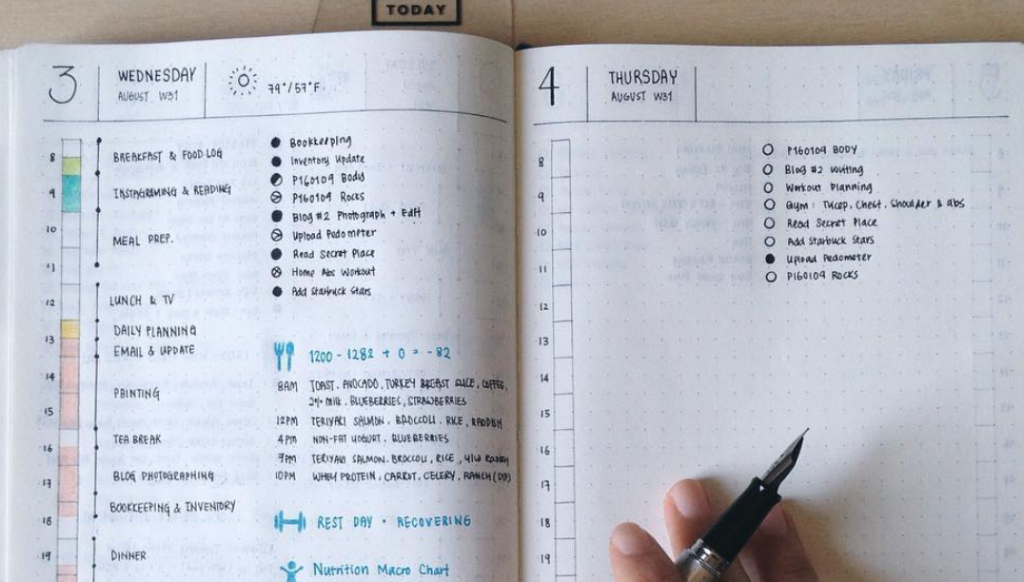 TODAY
3
WEDNESDAY
AUGUST W31
79°/57°F
8
BREAKFAST & FOOD LOG
9
INSTAGRAMING & READING
10
MEAL PREP.
11
12
LUNCH & TV
DAILY PLANNING
13
EMAIL & UPDATE
14
PAINTING
15
TEA BREAK
16
BLOG PHOTOGRAPHING
17
BOOKKEEPING & INVENTORY
18
DINNER
19
Bookkeeping
Inventory Update
P160109 Body
P160109 Rocks
Blog #2 Photograph + Edit
Upload Pedometer
Read Secret Place
Home Abs Workout
Add Starbuck Stars
1200 - 1282 + 0 = -82
8AM TOAST, AVOCADO, TURKEY BREAST SLICE, COFFEE,
2% milk, BLUEBERRIES, STRAWBERRIES
12PM TERIYAKI SALMON, BROCCOLI, RICE, RADISH
4PM NON-FAT YOGURT, BLUEBERRIES
7PM TERIYAKI SALMON, BROCCOLI, RICE,
10PM WHEY PROTEIN, CARROT, CELERY, RANCH
REST DAY - RECOVERING
Nutrition Macro Chart
4
THURSDAY
AUGUST W31
8
9
10
11
12
13
14
15
16
17
18
19
P160109 BODY
Blog #2 Writing
Workout Planning
Gym: Tricep, Chest, Shoulder & abs
Read Secret Place
Add Starbuck Stars
Upload Pedometer
P160109 ROCKS